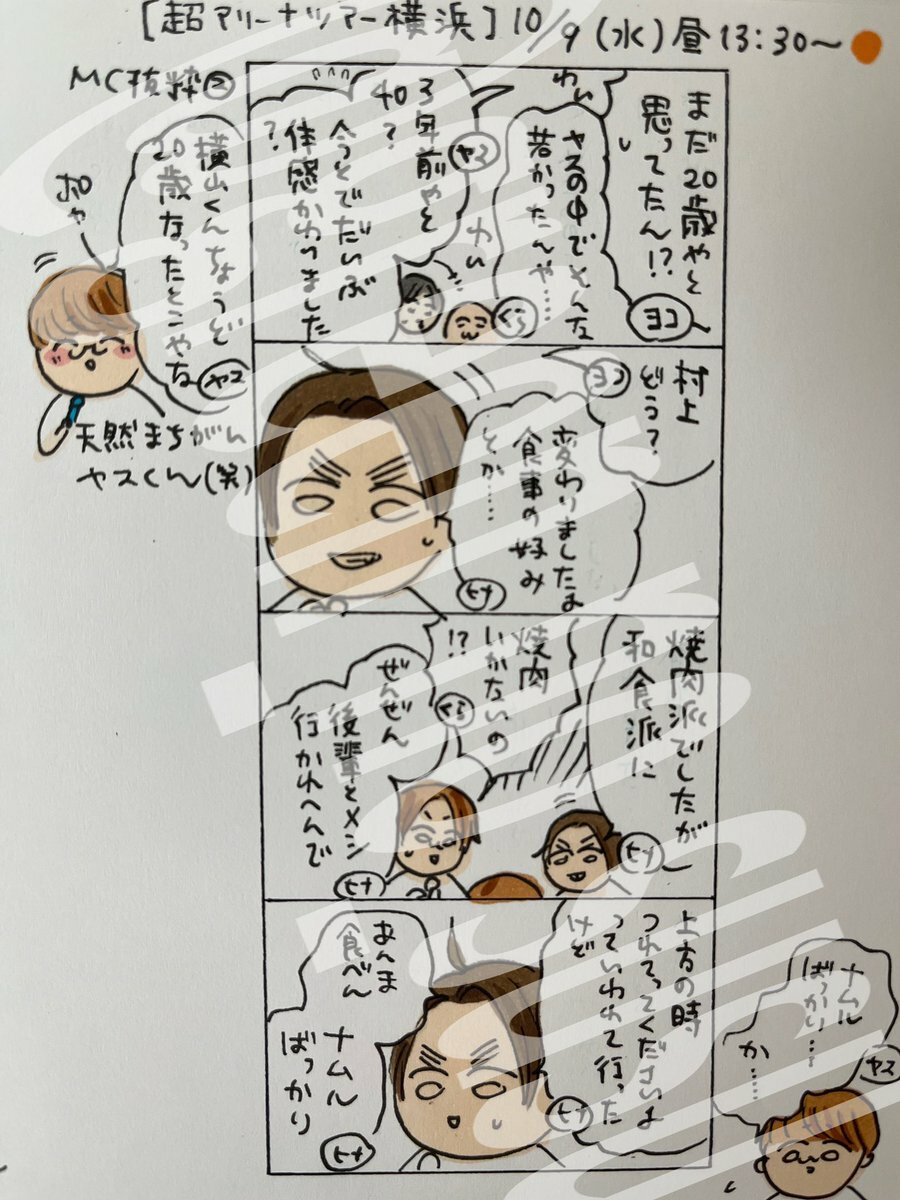 [超アリーナツアー横浜] 10/9(水)昼13:30〜
MC抜粋②
まだ20歳やと
思ってたん!?
ヨコ
わい
ヤスの中でそんな
若かったんや……
くら
わい
3年前やと
40?
今とでだいぶ
体感かわりました
?
ヤス
横山くんちょうど
20歳なったとこやな
ヤス
ポヤ
天然まちがい
ヤスくん(笑)
村上
どう?
ヨコ
変わりましたよ
食事の好み
とか……
ヒナ
焼肉派でしたが
和食派に
ヒナ
焼肉
いかないの
!?
くら
ぜんぜん
後輩とメシ
行かれへんで
ヒナ
上方の時
つれてってくださいよ
っていわれて行った
けど
ヒナ
あんま
食べん
ナムル
ばっかり
ヒナ
ナムル
ばっかり…
か……
ヤス